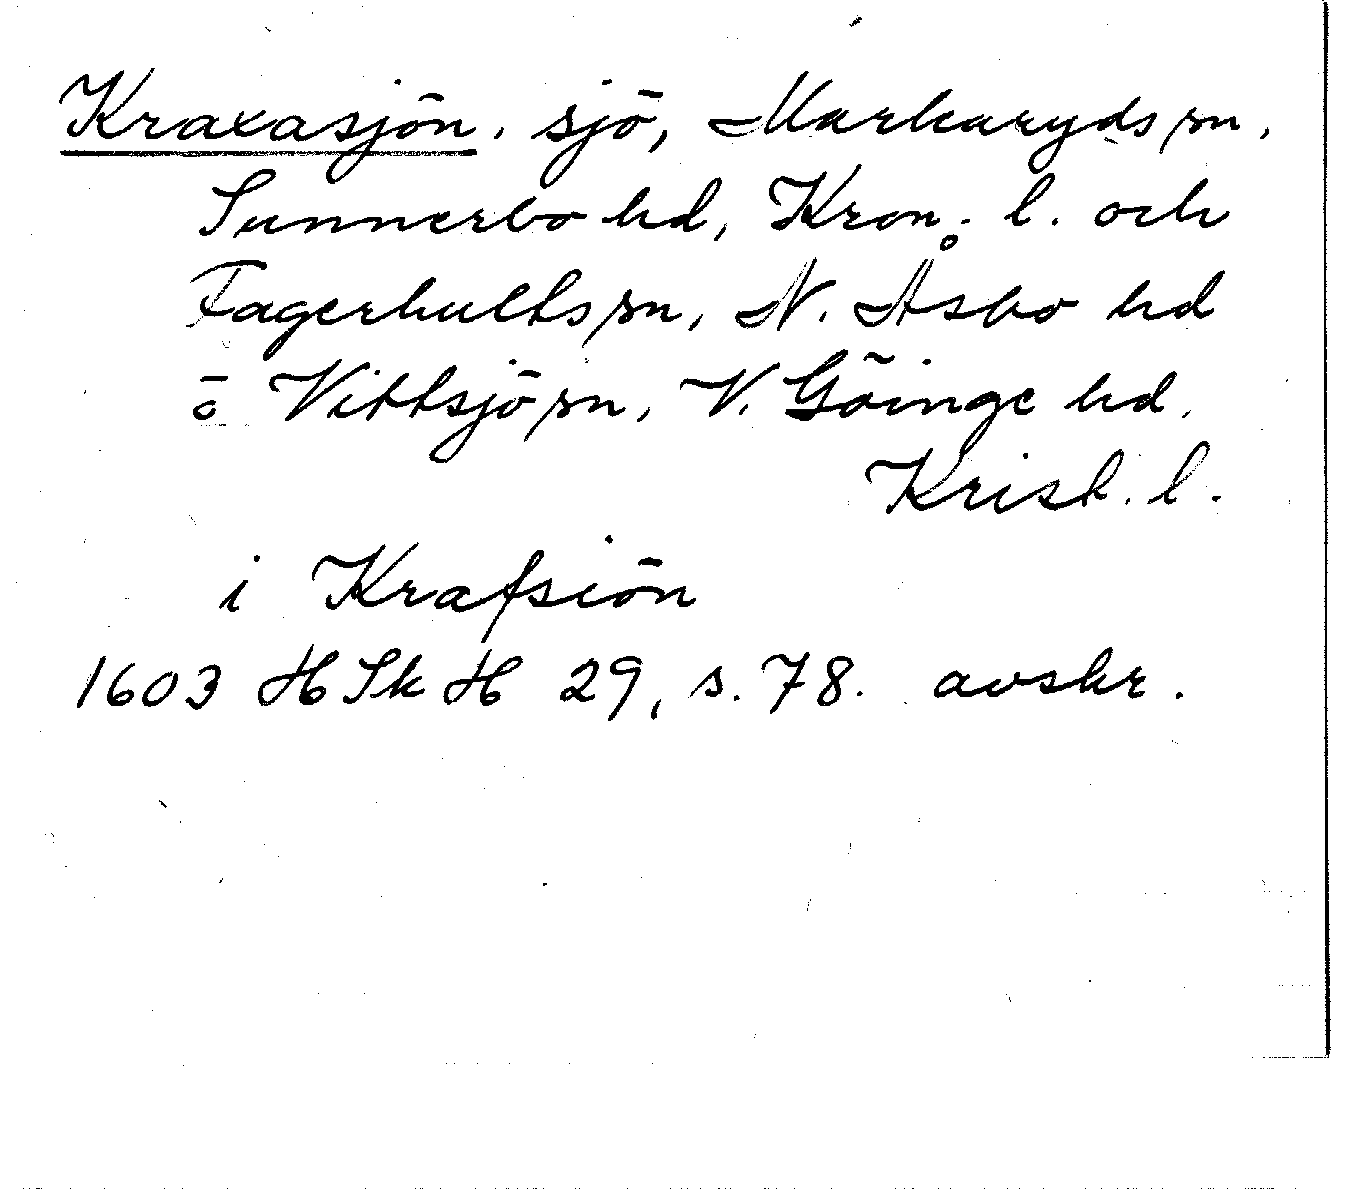 Kraxasjön, sjö, Markaryds sn,
Sunnerbo hd, Kron. l. och
Fagerhults sn, N. Åsbo hd
o Vittsjö sn, V. Göinge hd.
Krist. l.
i Krafsiön
1603 HSkH 29, s. 78. avskr.